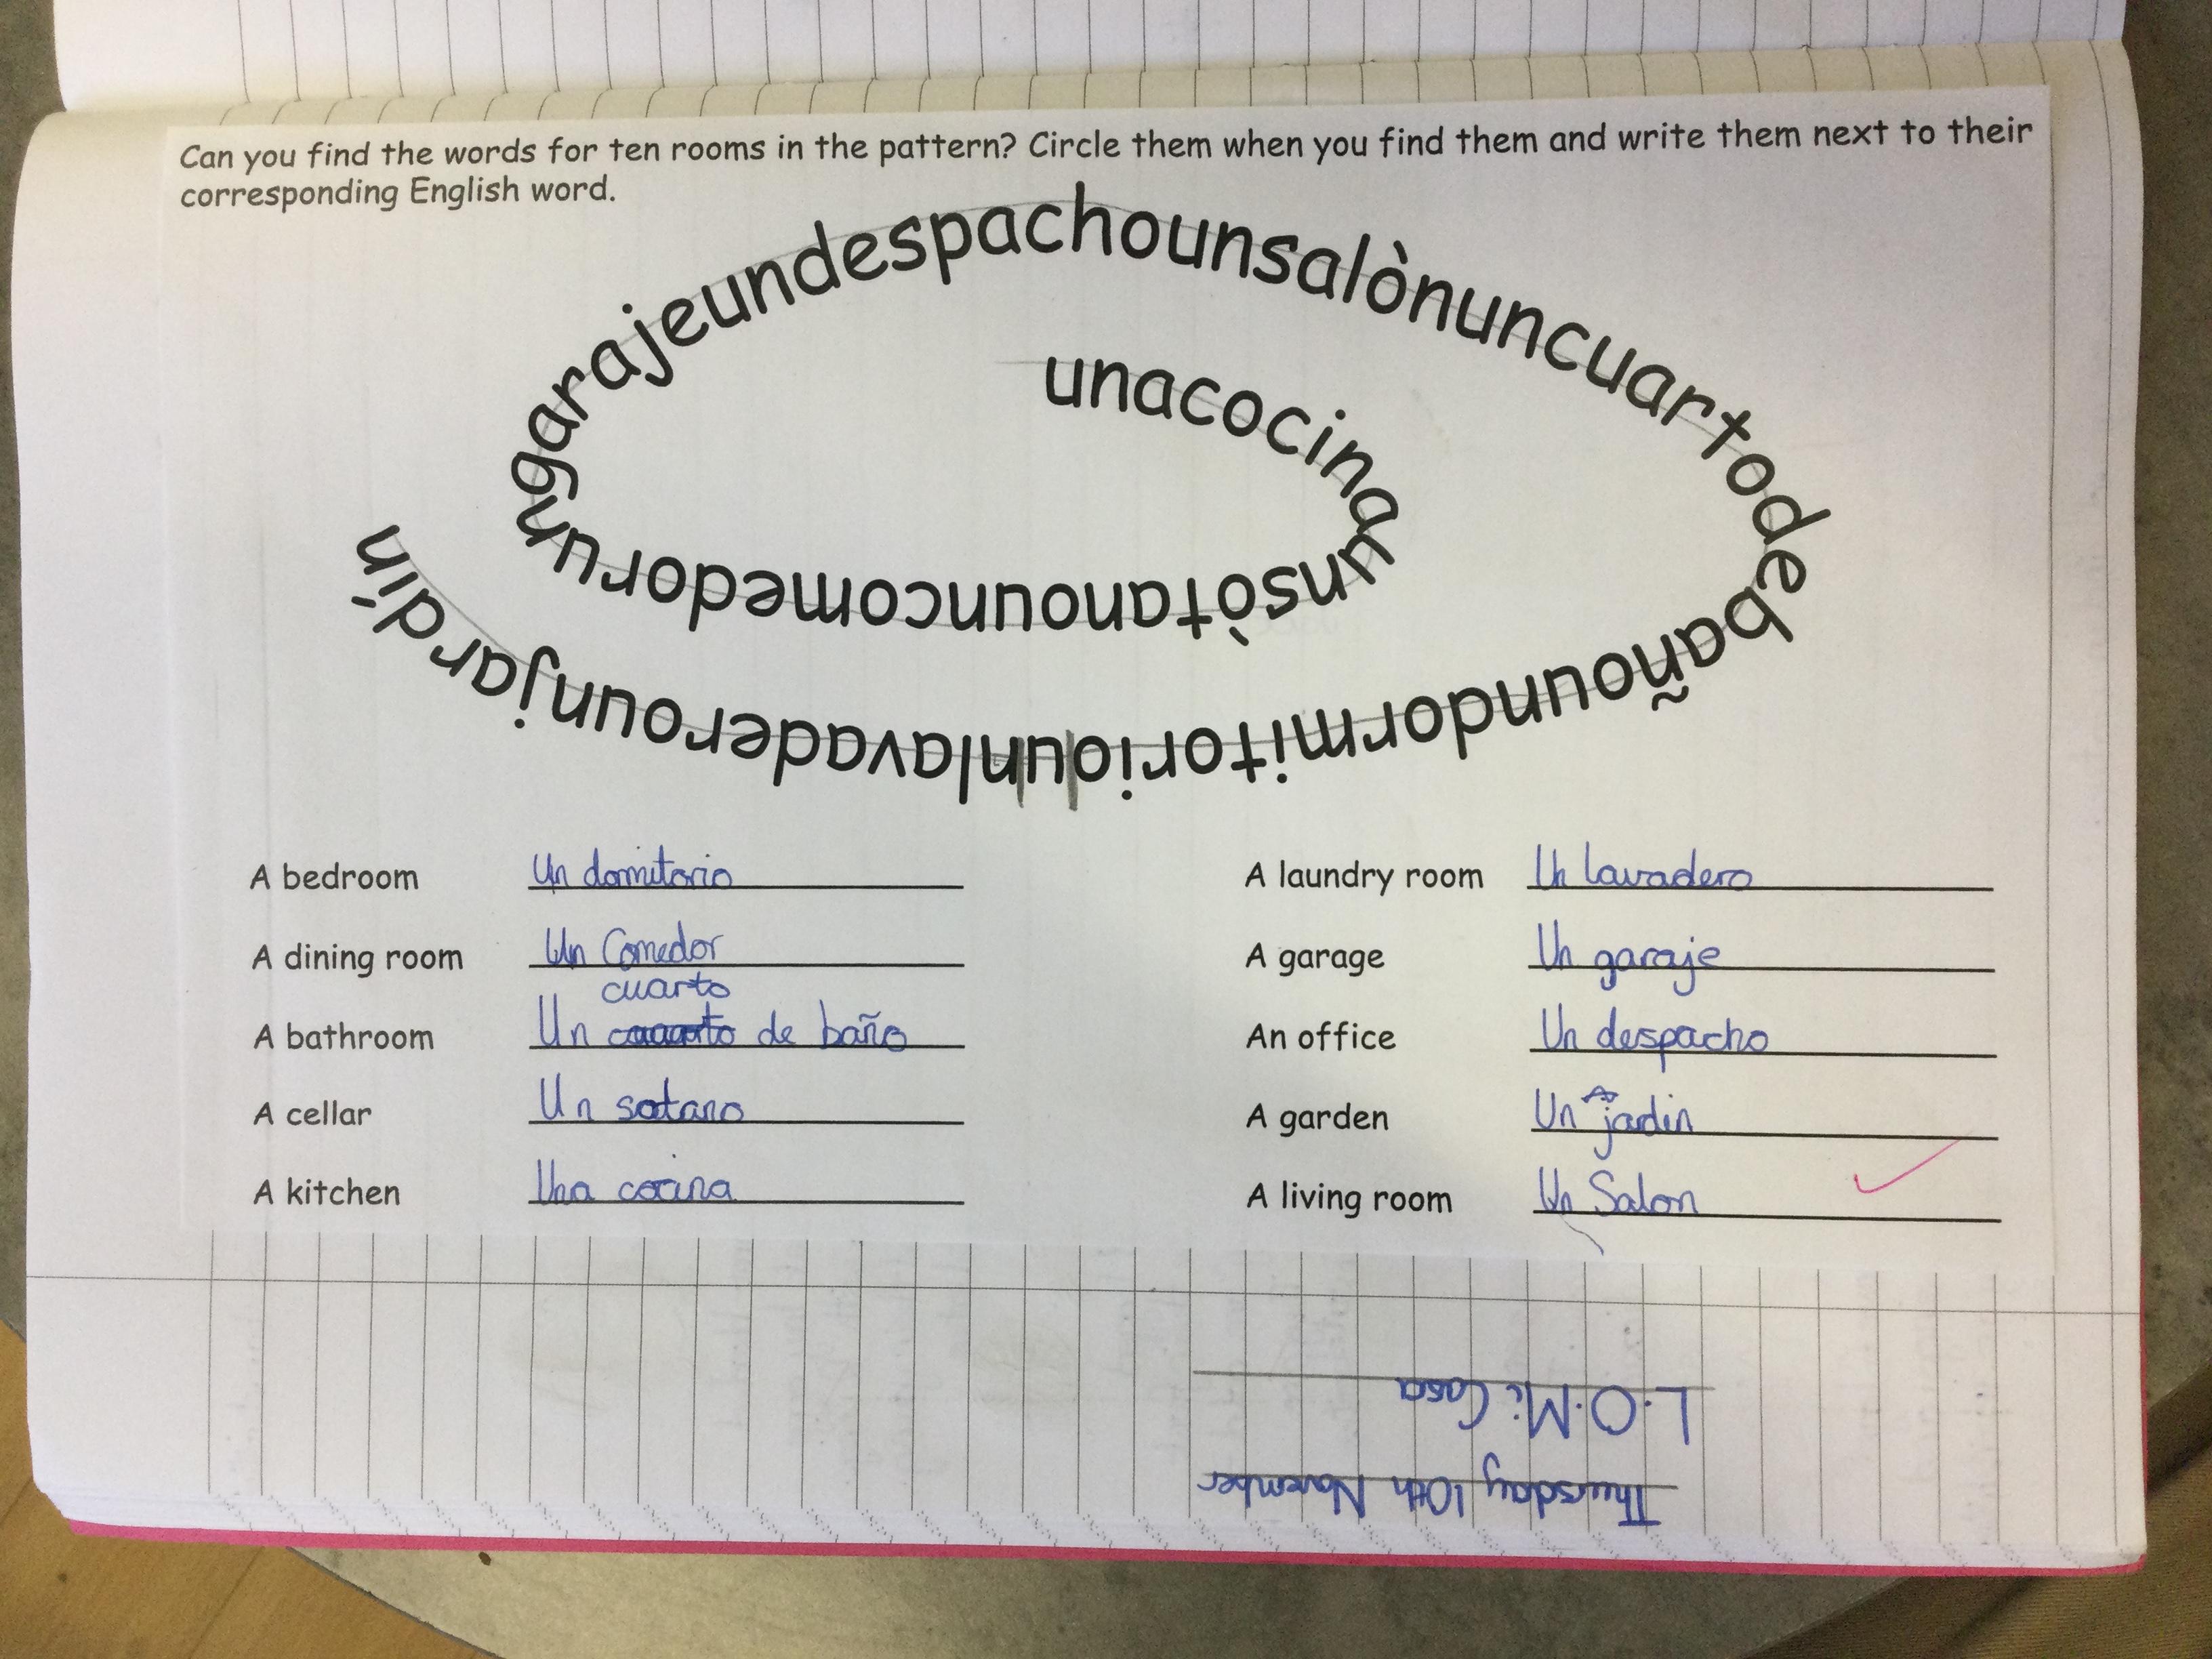 Can you find the words for ten rooms in the pattern? Circle them when you find them and write them next to their
corresponding English word.
unacocinaunsòtanouncomedorungarajeundespachounsalònuncuartodebañoundormitoriounlavaderounjardín
A bedroom Un domitorio
A dining room Un Comedor
cuarto
A bathroom Un de baño
A cellar Un sotano
A kitchen Una cocina
A laundry room Un lavadero
A garage Un garaje
An office Un despacho
A garden Un jardin
A living room Un Salon
Thursday 10th November
L.O.Mi Casa